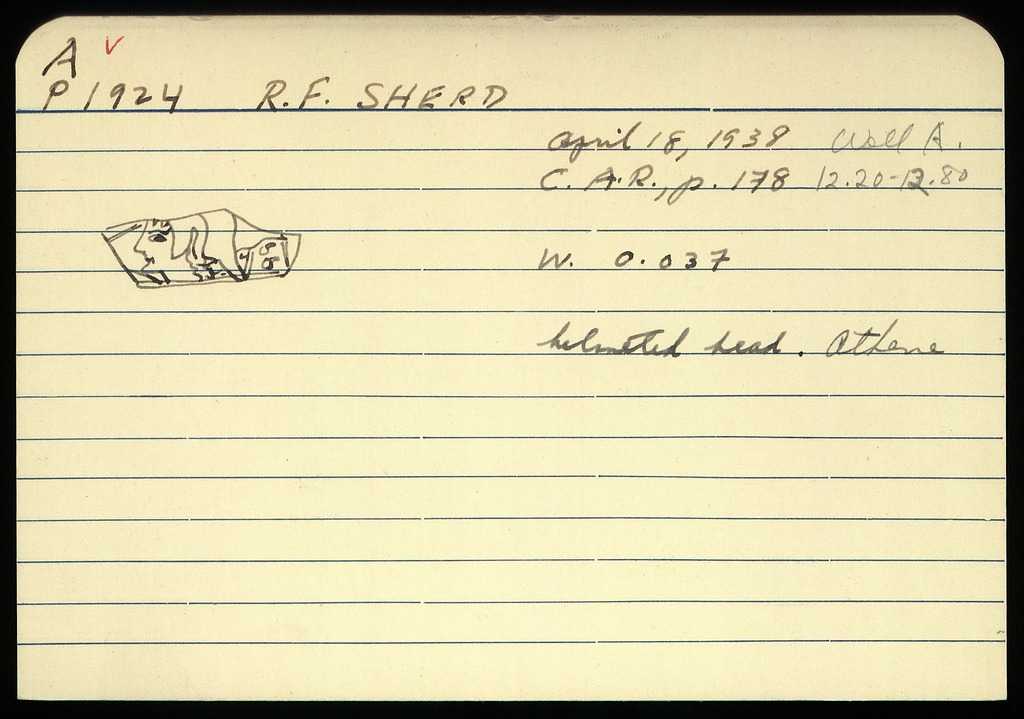 A
P 1924 R.F. SHERD
April 18, 1938 Well A.
C. A.R., p. 178 12.20-12.80
W. 0.037
helmeted head. Athene